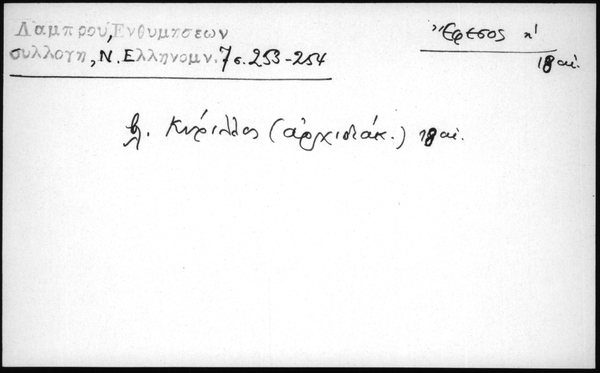 Λάμπρου, Ἐνθυμήσεων
συλλογή, Ν. Ἑλληνομν. 7 σ. 253-254
Ἔρεσος
18 αἰ.
βλ. Κύριλλος (ἀρχιδιάκ.) 18 αἰ.